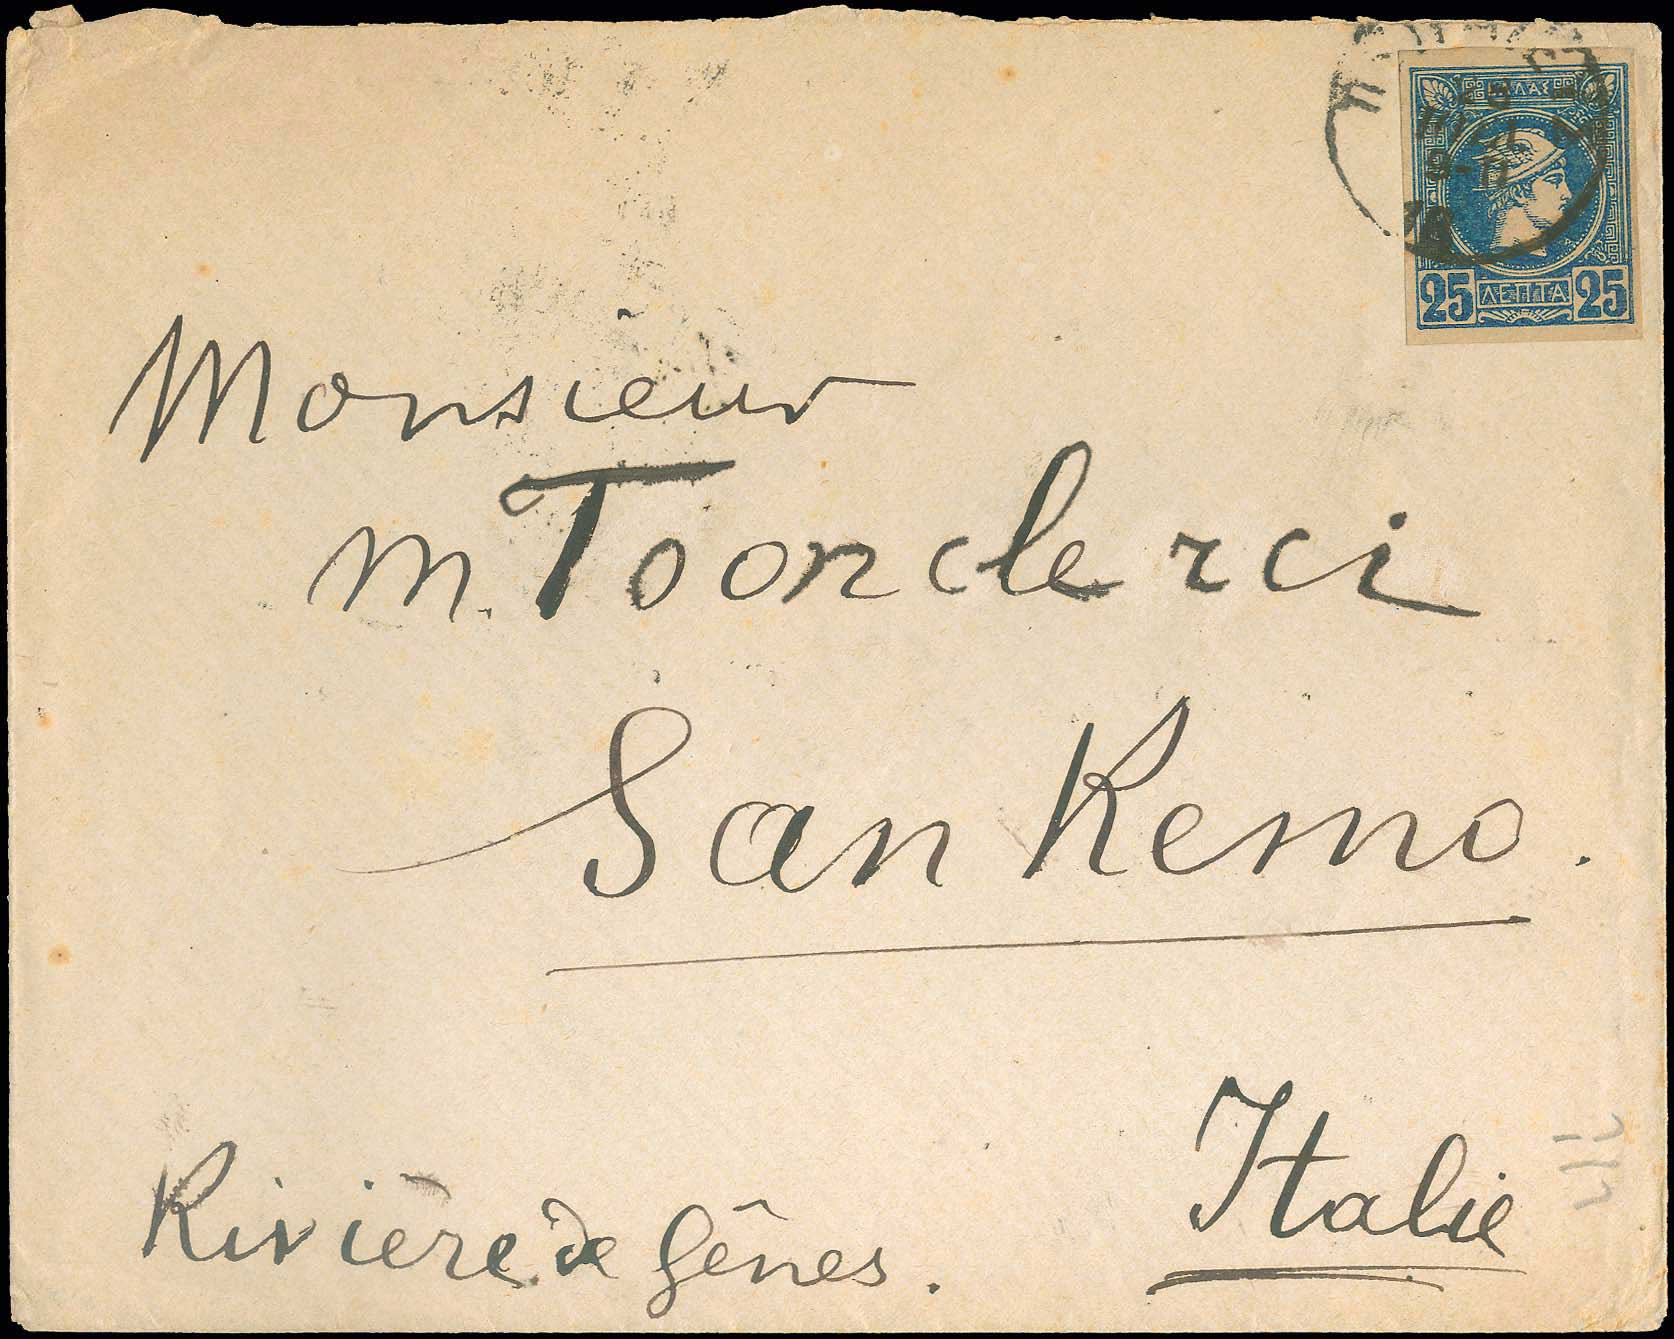 ΕΛΛΑΣ
25 ΛΕΠΤΑ 25
Monsieur
m. Toonclerci
San Remo.
Italie
Rivière de Gênes.